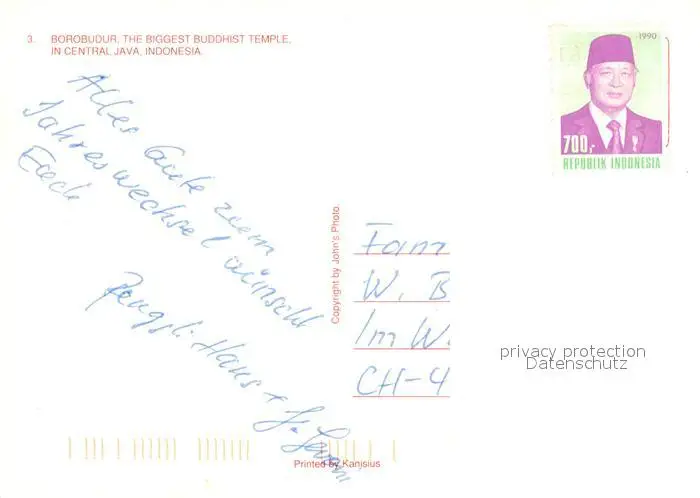 3. BOROBUDUR, THE BIGGEST BUDDHIST TEMPLE,
IN CENTRAL JAVA, INDONESIA.
1990
700,-
REPUBLIK INDONESIA
Alles Gute zum
Jahreswechsel wünscht
Euch
Hans +
Copyright by John's Photo.
Fam
W. B
Im W.
CH-4
privacy protection
Datenschutz
Printed by Kanisius